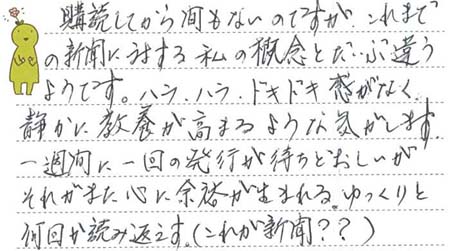 購読してから間もないのですが、これまで
の新聞に対する私の概念とだいぶ違う
ようです。ハラハラ、ドキドキ感がなく、
静かに教養が高まるような気がします。
一週間に一回の発行が待ちどおしいが
それがまた心に余裕が生まれる。ゆっくりと
何回か読み返えす。(これが新聞??)